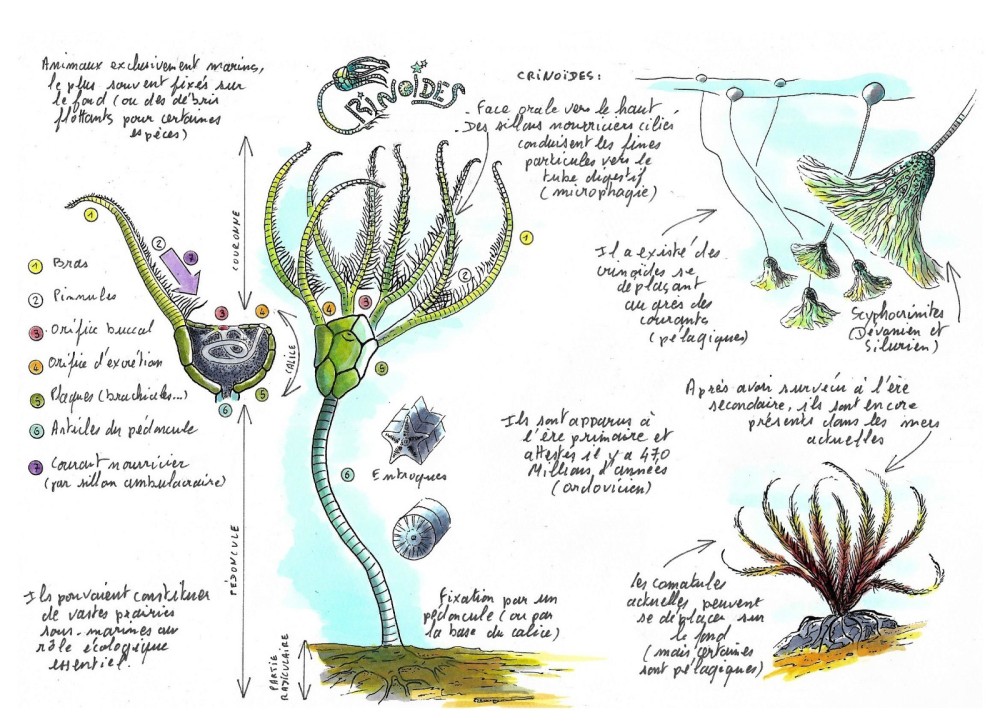 Animaux exclusivement marins,
le plus souvent fixés sur
le fond (ou des débris
flottants pour certaines
espèces)
CRINOÏDES
CRINOÏDES:
- Face orale vers le haut.
- Des sillons nourriciers ciliés
conduisent les fines
particules vers le
tube digestif
(microphagie)
COURONNE
1
2
7
3
4
4
3
2
1
1 Bras
2 Pinnules
3 Orifice buccal
4 Orifice d'excrétion
5 Plaques (brachiales...)
6 Articles du pédoncule
7 Courant nourricier
(par sillon ambulacraire)
CALICE
5
6
5
6
Entroques
Il a existé des
crinoïdes se
déplaçant
au grès des
courants
(pélagiques)
Scyphocrinites
(Dévonien et
Silurien)
Ils sont apparus à
l'ère primaire et
attestés il y a 470
Millions d'années
(ordovicien)
Après avoir survécu à l'ère
secondaire, ils sont encore
présents dans les mers
actuelles
PÉDONCULE
Ils pouvaient constituer
de vastes prairies
sous-marines au
rôle écologique
essentiel.
PARTIE
RADICULAIRE
Fixation par un
pédoncule (ou par
la base du calice)
les comatules
actuelles peuvent
se déplacer sur
le fond
(mais certaines
sont pélagiques)